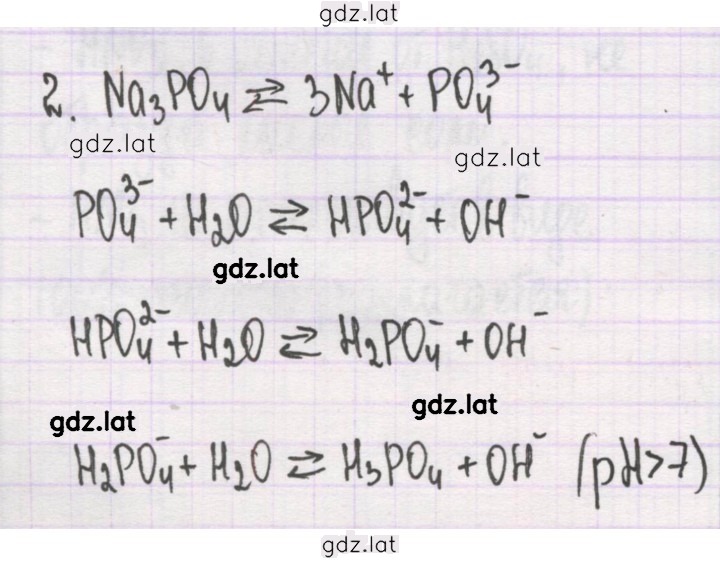 gdz.lat
2. Na₃PO₄ ⇄ 3Na⁺ + PO₄³⁻
gdz.lat
gdz.lat
PO₄³⁻ + H₂O ⇄ HPO₄²⁻ + OH⁻
gdz.lat
HPO₄²⁻ + H₂O ⇄ H₂PO₄⁻ + OH⁻
gdz.lat
gdz.lat
H₂PO₄⁻ + H₂O ⇄ H₃PO₄ + OH⁻ (pH>7)
gdz.lat